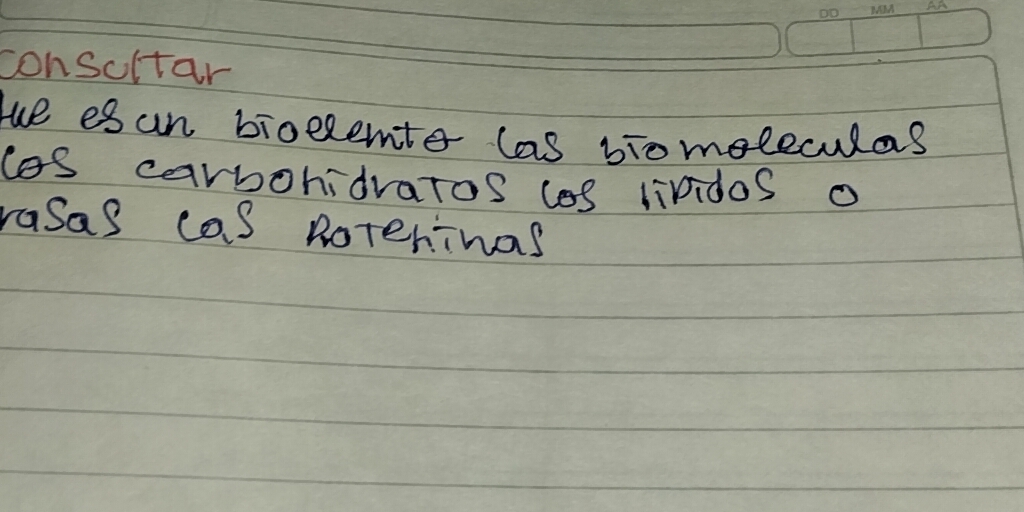 DD MM AA
consultar
que es un bioelemto las biomoleculas
los carbohidratos los lipidos o
rasas las Roteninas